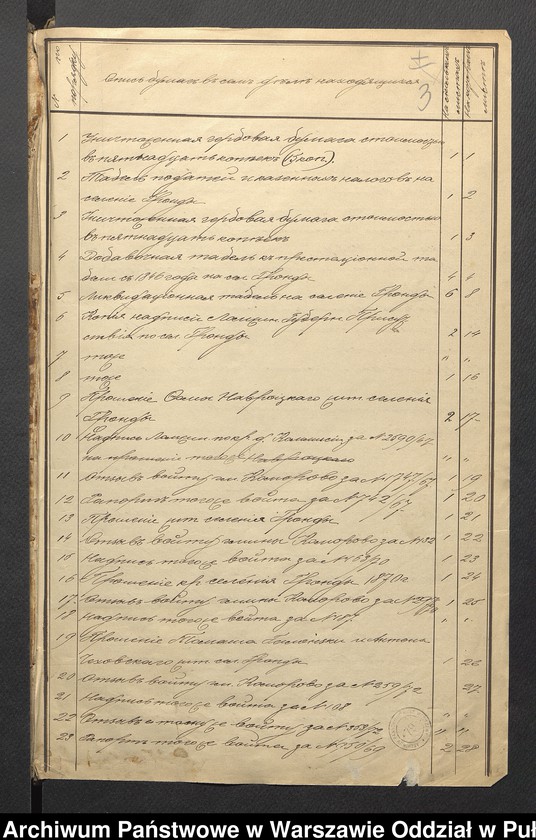 № по порядку
Опись бумагъ въ семъ дѣлѣ находящихся
На сколькихъ листахъ
На какомъ листѣ
3
1 Уничтоженная гербовая бумага стоимостью
въ пятнадцать копѣекъ (5 коп). 1 1
2 Табель податей и казенныхъ налоговъ на
селеніе Гронды 1 2
3 Уничтоженная гербовая бумага стоимостью
въ пятнадцать копѣекъ 1 3
4 Добавочная табель къ престаціонной та
бели съ 1846 года на сел. Гронды 4 4
5 Ликвидаціонная табель на селеніе Гронды 6 8
6 Копія надписи Ломжин. Губерн. Присут
ствія по сел. Гронды 2 14
7 тоже " "
8 тоже 1 16
9 Прошеніе Навроцкаго жит. селенія
Гронды 2 17
10 Надпись Ломжин. по кр. д. Коммисіи за № 2590/67
на прошеніе того же Навроцкаго " "
11 Отзывъ войту гм. Коморово за № 1747/67 1 19
12 Рапортъ того же войта за № 742/67 1 20
13 Прошеніе жит. селенія Гронды 1 21
14 Отзывъ войту гмины Коморово за № 1 22
15 Надпись того же войта за № 1 23
16 Прошеніе кр. селенія Гронды 1870 г 1 24
17 Отзывъ войту гмины Коморово за № 1 25
18 Надпись того же войта за № 187. " "
19 Прошеніе Томаша и Антона
Чеховскаго жит. сел. Гронды 1 26
20 Отзывъ войту гм. Коморово за № 259/72 27
21 Надпись того же войта за № 108 " "
22 Отзывъ тому же войту за № 358/72 " "
23 Рапортъ того же войта за № 159/69 2 28
Archiwum Państwowe w Warszawie Oddział w Puł